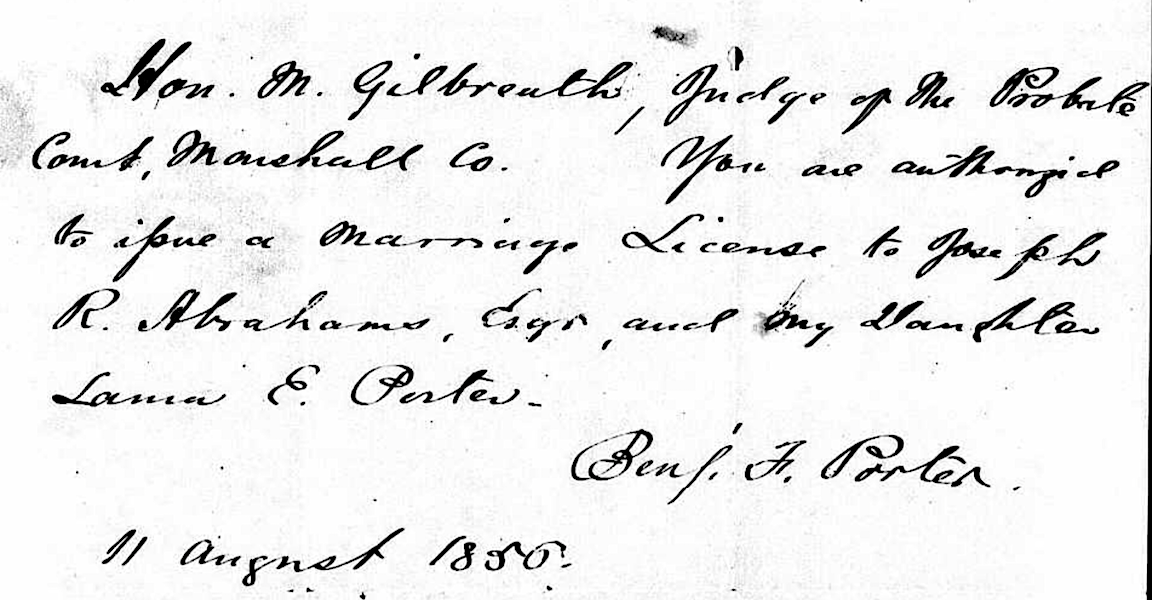 Hon. M. Gilbreath, Judge of the Probate
Court, Marshall Co. You are authorized
to issue a Marriage License to Joseph
R. Abrahams, Esqr, and my Daughter
Laura E. Porter.
Benj. F. Porter.
11 August 1856.